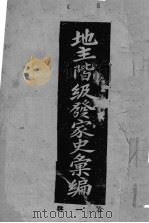 地主階級發家史彙編